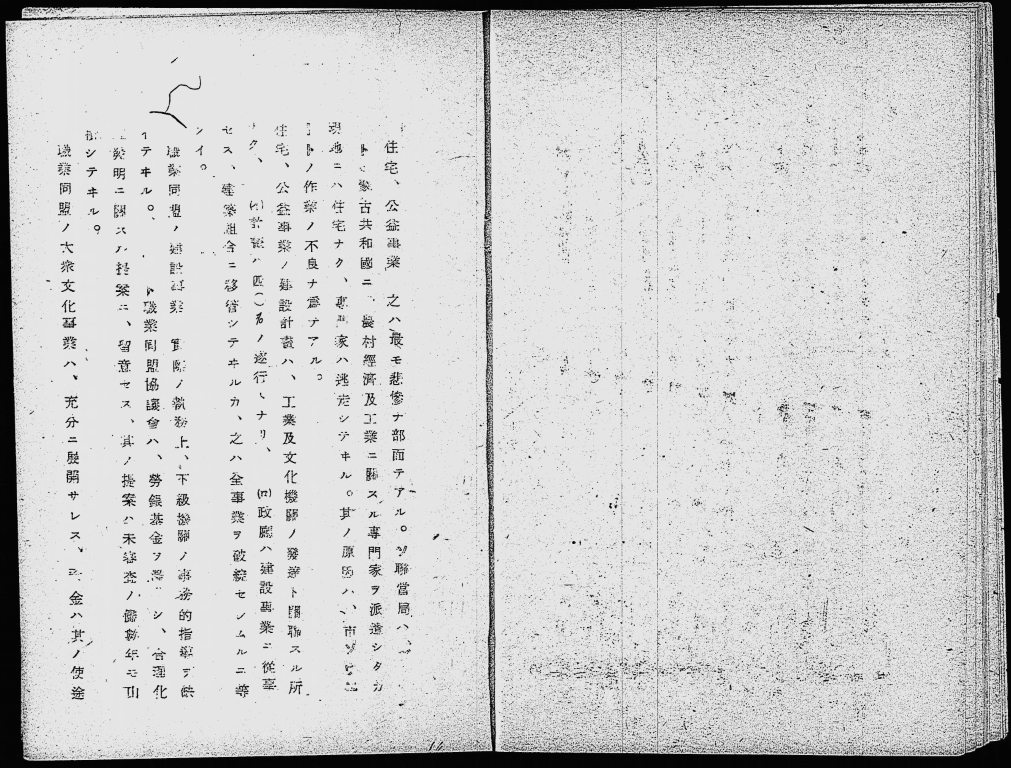 住宅、公益事業 之ハ最モ悲慘ナ部面テアル。ソ聯當局ハ、
蒙古共和國ニ、農村經濟及工業ニ關スル專門家ヲ派遣シタカ
現地ニハ住宅ナク、專門家ハ逃走シテヰル。其ノ原因ハ、市
トノ作業ノ不良ナ爲テアル。
住宅、公益事業ノ建設計畫ハ、工業及文化機關ノ發達ト關聯スル所
ク、(イ)計畫ハ四〇%ノ遂行トナリ、(ロ)政廳ハ建設事業ニ從事
セス、建築組合ニ移管シテヰルカ、之ハ全事業ヲ破綻セシムルニ等
シイ。
職業同盟ノ建設事業 實際ノ執務上、下級機關ノ事務的指導ヲ缺
イテヰル。職業同盟協議會ハ、勞銀基金ヲ シ、合理化
發明ニ關スル提案ニ、留意セス、其ノ提案ハ未審査ノ儘數年モ山
積シテヰル。
職業同盟ノ大衆文化事業ハ、充分ニ展開サレス、金ハ其ノ使途
14